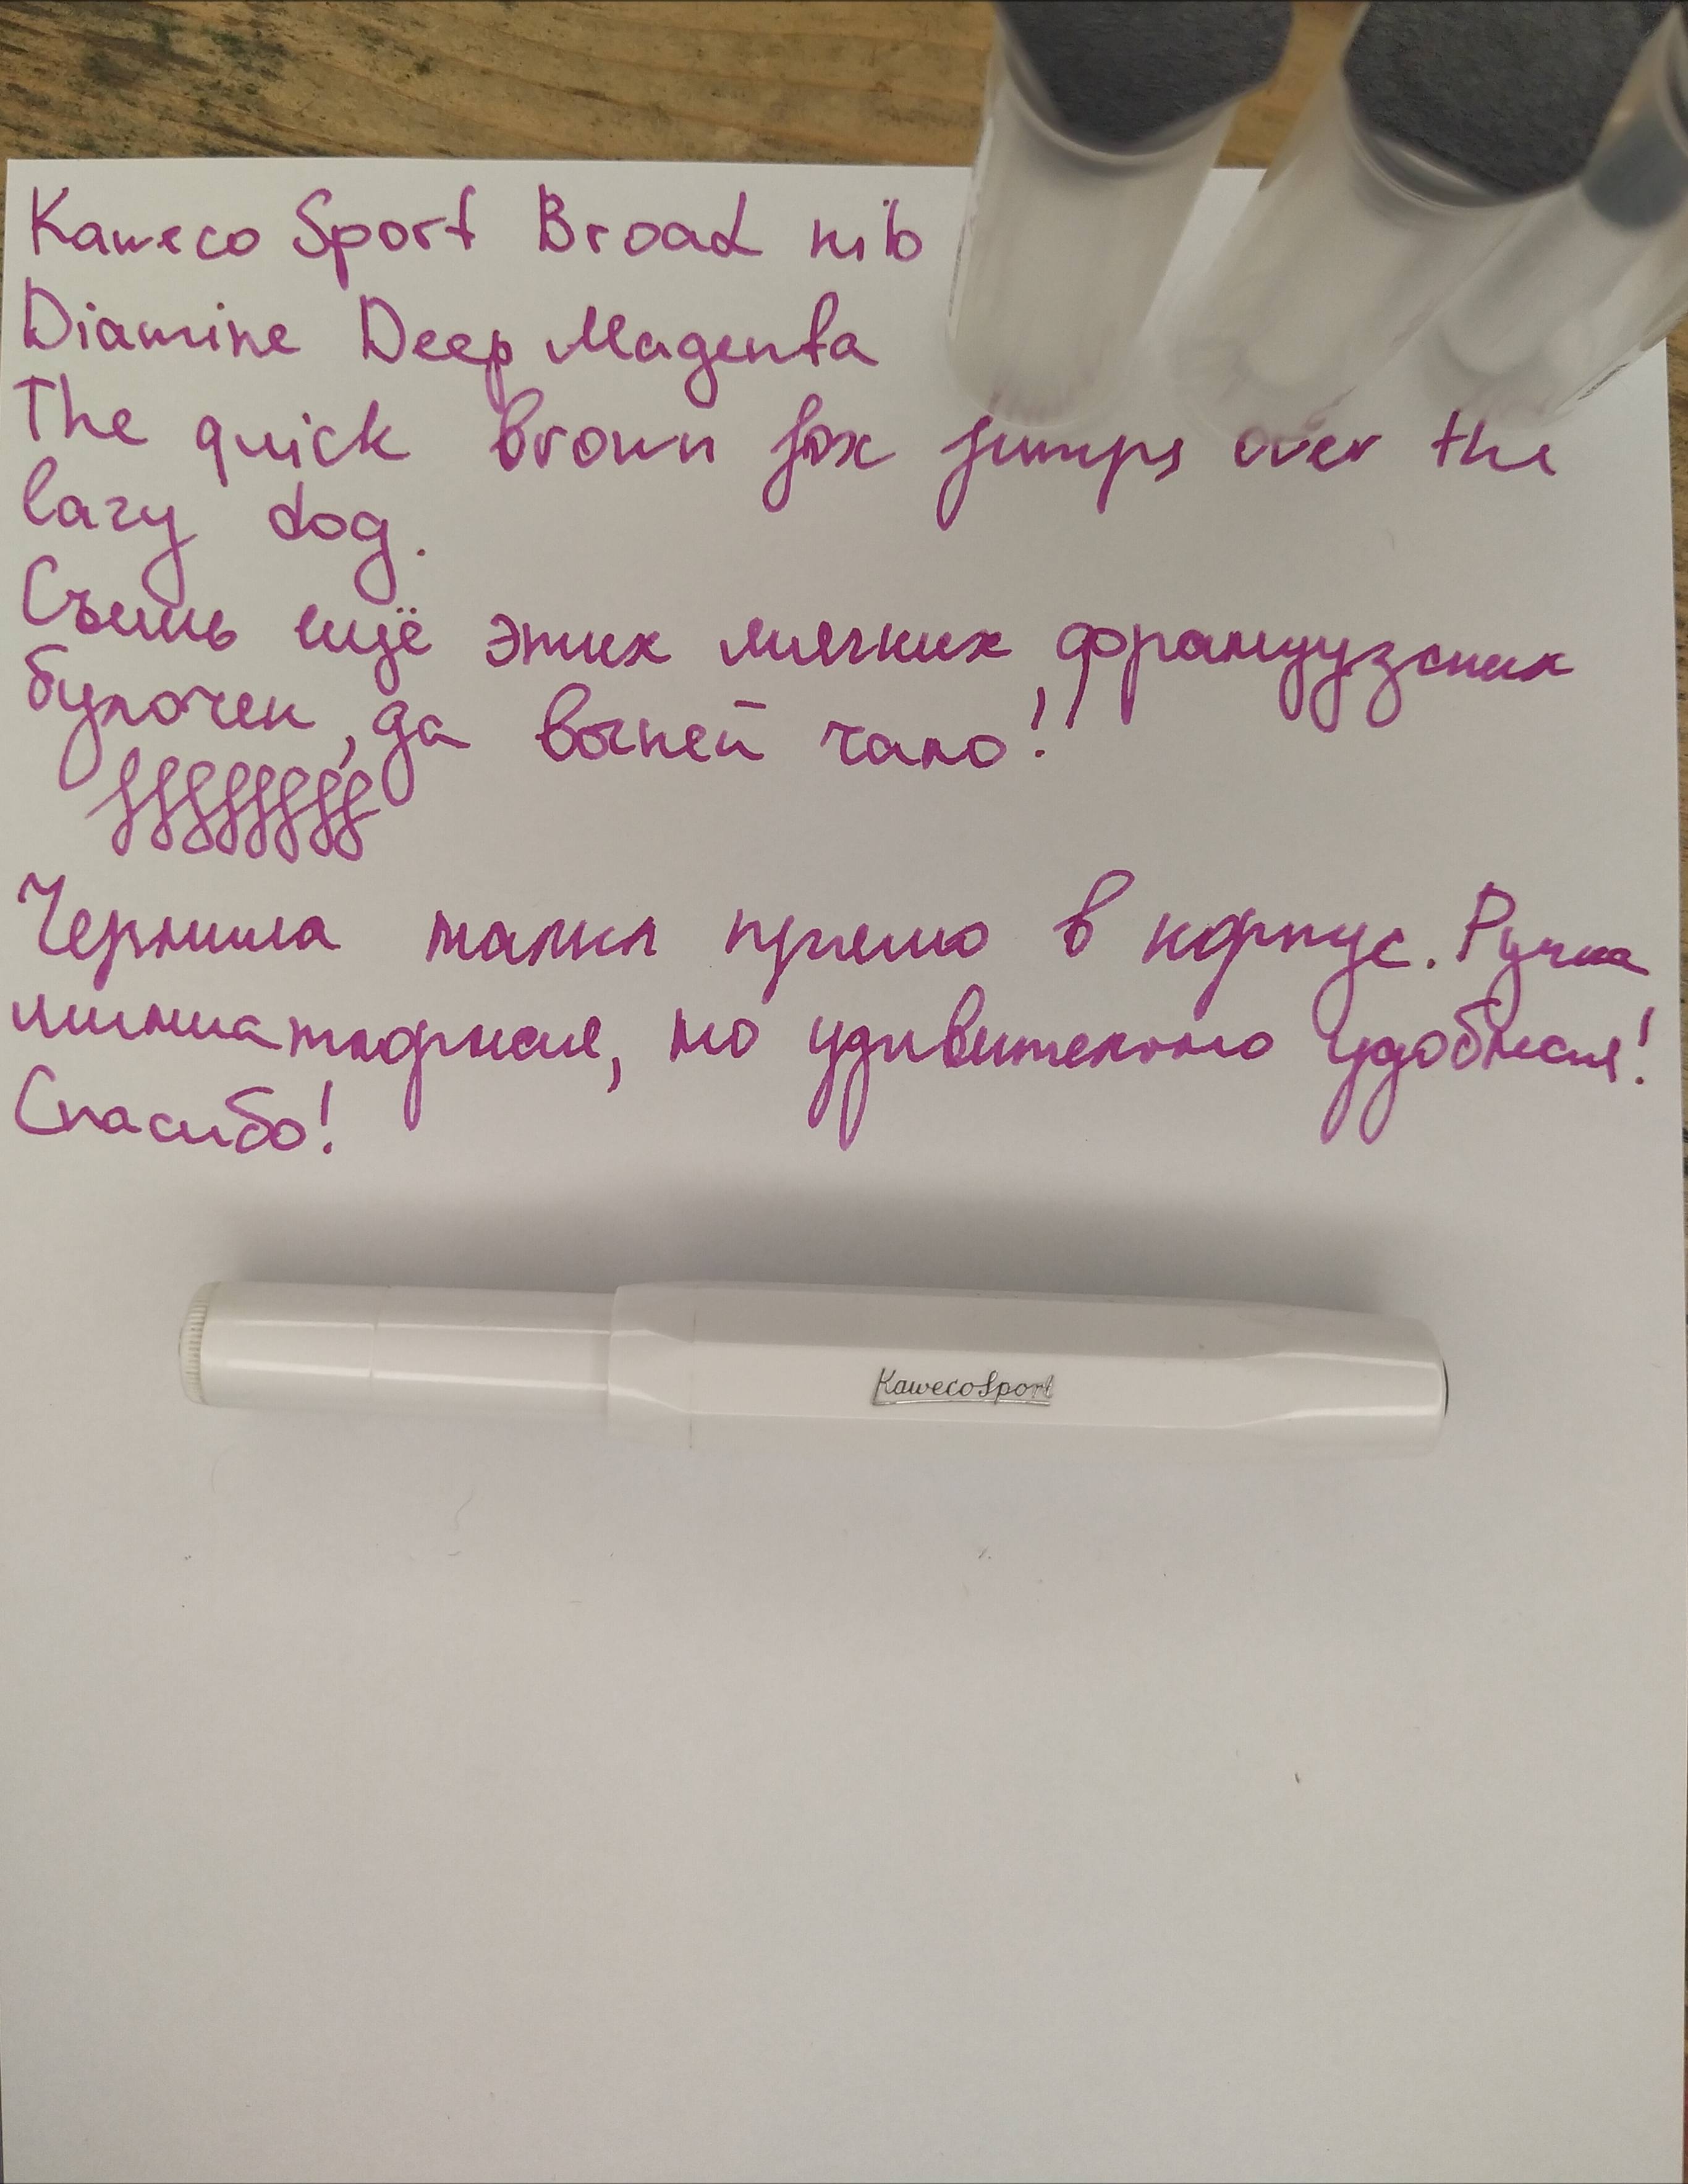 Kaweco Sport Broad nib
Diamine Deep Magenta
The quick brown fox jumps over the
lazy dog.
Съешь ещё этих мягких французских
булочек, да выпей чаю!
Чернила налил прямо в корпус. Ручка
миниатюрная, но удивительно удобная!
Спасибо!
KawecoSport